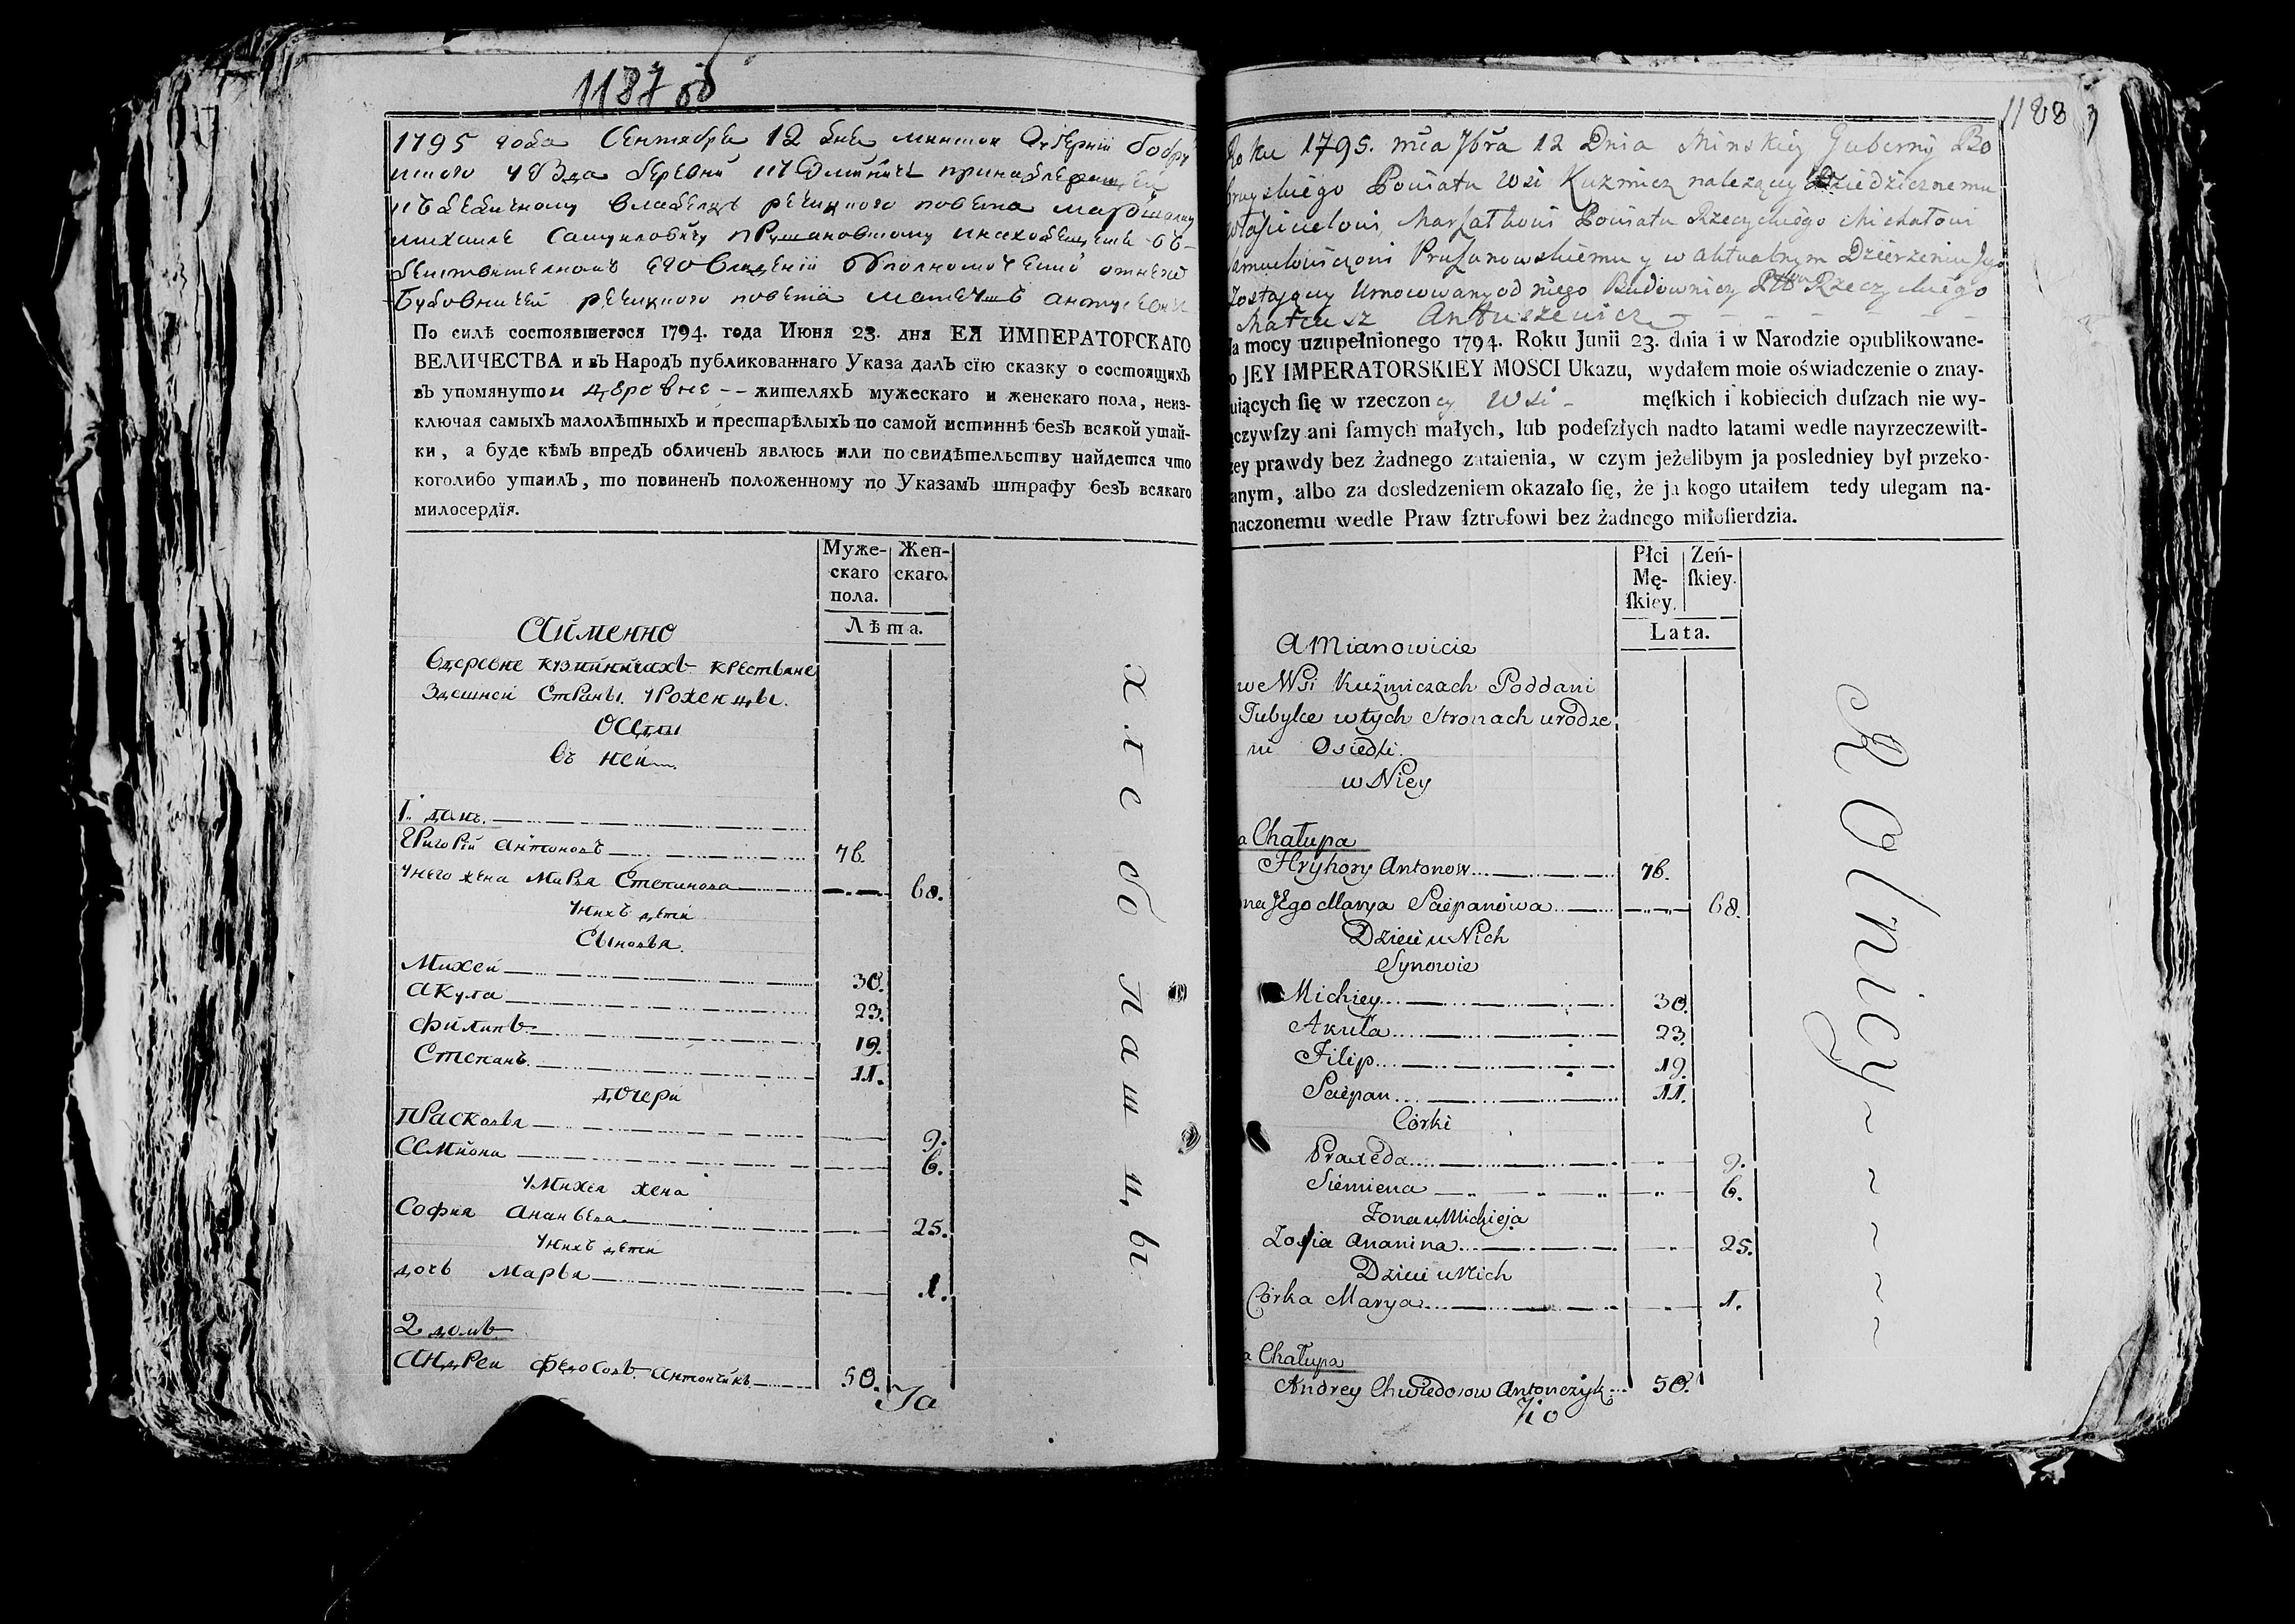 1187 об
1795 года Сентября 12 дня минской Губерніи бобру
уезда деревни
владелцу речицкого повета маршалку
михаилу Самуиловичу
действителномъ его владеніи
речицкого повета матеушъ
По силѣ состоявшегося 1794. года Июня 23. дня ЕЯ ИМПЕРАТОРСКАГО
ВЕЛИЧЕСТВА и въ Народѣ публикованнаго Указа далъ сїю сказку о состоящихъ
въ упомянутои деревне -- жителяхъ мужескаго и женскаго пола, неиз-
ключая самыхъ малолѣтныхъ и престарѣлыхъ по самой истиннѣ безъ всякой утай-
ки, а буде кѣмъ впредъ обличенъ явлюсь или по свидѣтельству найдется что
коголибо утаилъ, то повиненъ положенному по Указамъ штрафу безъ всякаго
милосердїя.
Муже-
скаго
пола.
Жен-
скаго.
Лѣта.
Аименно
Вдеревне кузминичахъ крестьяне
Здешней Страны уроженцы.
Въ ней
1. домъ.
Григорій антоновъ 76.
унего жена Марья Степанова 68.
Унихъ дети
Сыновья.
Михей 30.
Акула 23.
Филипъ 19.
Степанъ 11.
дочери
Прасковья 9.
Семиона 6.
уМихея жена
София Ананьева 25.
унихъ дети
дочь Марья 1.
2 домъ
Андрей Федосовъ Антончикъ 50.
Ja
хлебопашцы
1188
Roku 1795. mča 7bra 12 Dnia Minskiey Guberny Bo
bruyskiego Powiatu Wsi Kuzmicz należący Dziedzicznemu
właścicielowi, Marszałkowi Powiatu Rzeczyckiego Michałowi
Samuelowiczowi Pruszanowskiemu y w aktualnym Dzierżeniu Jego
Zostający Umocowany od niego Budowniczy Ptu Rzeczyckiego
Mateusz Antuszewicz
Na mocy uzupełnionego 1794. Roku Junii 23. dnia i w Narodzie opublikowane-
go JEY IMPERATORSKIEY MOSCI Ukazu, wydałem moie oświadczenie o znay-
duiących ſię w rzeczoney Wsi - męſkich i kobiecich duſzach nie wy-
łączywſzy ani ſamych małych, lub podeſzłych nadto latami wedle nayrzeczewiſt-
szey prawdy bez żadnego zataienia, w czym jeżelibym ja posledniey był przeko-
nanym, albo za dosledzeniem okazało ſię, że ja kogo utaiłem tedy ulegam na-
znaczonemu wedle Praw ſztrofowi bez żadnego miłoſierdzia.
Płci
Mę-
ſkiey.
Zeń-
ſkiey.
Lata.
A Mianowicie
we Wsi Kuźmiczach Poddani
Tubylce w tych Stronach urodze
ni Osiedli.
w Niey
a Chałupa
Hryhory Antonow 76.
ona Jego Marya Sciepanowa 68.
Dzieci u Nich
Synowie
Michiey 30.
Akuła 23.
Filip 19.
Sciepan 11.
Córki
Praxeda 9.
Siemiena 6.
Żona u Michieja
Zofia Ananina 25.
Dzieci u Nich
Córka Marya 1.
a Chałupa
Andrey Chwiedosow Antonczyk 50.
Rolnicy